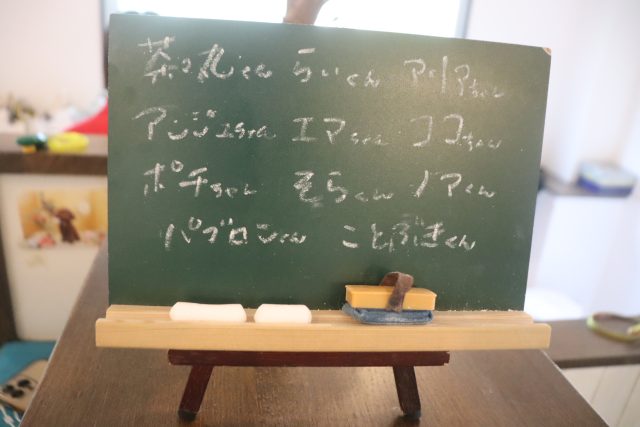 茶々丸くん らいくん アリアちゃん
アンジュちゃん エマちゃん ココちゃん
ポチちゃん そらくん ノアくん
パブロンくん ことぶきくん